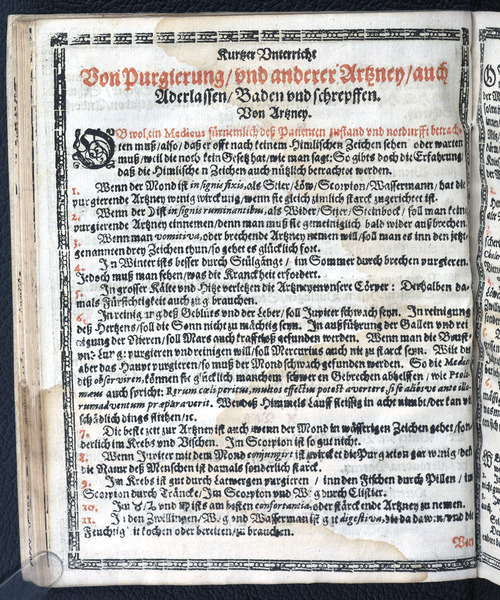 Kurtzer Vnterricht
Von Purgierung/ vnd anderer Artzney/ auch
Aderlassen/ Baden vnd schrepffen.
Von Artzney.
OB wol ein Medicus fürnemlich deß Patienten zustand vnd notdurfft betrach-
ten muß/ also/ daß er offt nach keinem Himlischen Zeichen sehen oder warten
muß/ weil die noth kein Gesetz hat/ wie man sagt: So gibts doch die Erfahrung/
daß die Himlischen Zeichen auch nützlich betrachtet werden.
1. Wenn der Mond ist in signis fixis, als Stier/ Löw/ Scorpion/ Wassermann/ hat die
purgierende Artzney wenig wirckung/ wenn sie gleich zimlich starck zugerichtet ist.
2. Wenn der Mond ist in signis ruminantibus, als Wider/ Stier/ Steinbock/ soll man keine
purgierende Artzney einnemen/ denn man muß sie gemeiniglich bald wider außbrechen.
3. Wenn man vomitiva, oder brechende Artzney nemen will/ soll man es inn den jetzt-
genannten drey Zeichen thun/ so gehet es glücklich fort.
4. Im Winter ists besser durch Stülgänge/ im Sommer durch brechen purgieren.
Jedoch muß man sehen/ was die Kranckheit erfordert.
5. In grosser Kälte vnd Hitze verletzen die Artzneyen vnsere Cörper: Derhalben da-
mals Fürsichtigkeit auch zu gebrauchen.
6. In reinigung deß Geblüts vnd der Leber/ soll Jupiter schwach seyn. In reinigung
deß Hertzens/ soll die Sonn nicht zu mächtig seyn. In außführung der Gallen vnd rei-
nigung der Nieren/ soll Mars auch krafftloß gefunden werden. Wenn man die Brust
vnd Lung purgieren vnd reinigen will/ soll Mercurius auch nit zu starck seyn. Wilt du
aber das Haupt purgieren/ so muß der Mond schwach gefunden werden. So die Medici
diß observiren, können sie glücklich manchem schweren Gebrechen abhelffen/ wie Ptole-
mæus auch spricht: Rerum cœli peritus, multos effectus potest avertere, si se adversus ante illo-
rum adventum præparaverit. Wer deß Himmels Lauff fleissig in acht nimbt/ der kan vil
schädlich dings
7. Die beste zeit zur Artzney ist auch/ wenn der Mond in wässrigen Zeichen gehet/ son-
derlich im Krebs vnd Vischen. Im Scorpion ist so gut nicht.
8. Wenn Jupiter mit dem Mond conjungirt ist/ wircket die Purgation gar wenig/ deß
die Natur deß Menschen ist damals sonderlich starck.
9. Im Krebs ist gut durch Latwergen purgieren/ inn den Fischen durch Pillen/ im
Scorpion durch Träncke/ Im Scorpion vnd Wag durch Clistier.
10. Im ♉/ vnd ist am besten confortantia, oder stärckende Artzney zu nemen.
11. In den Zwillingen/ Wag vnd Wasserman ist gut digestiva, die da dawen/ vnd die
Feuchtigkeit kochen oder bereiten/ zu brauchen.